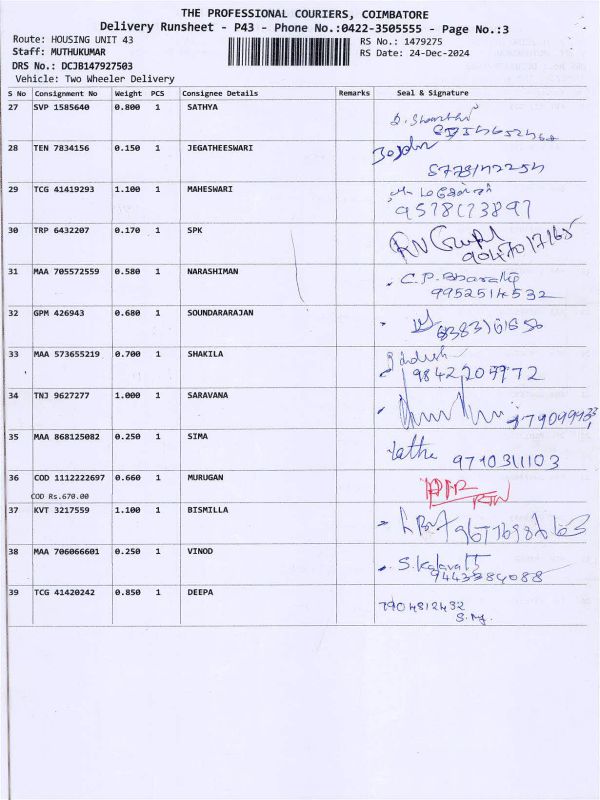 THE PROFESSIONAL COURIERS, COIMBATORE
Delivery Runsheet - P43 - Phone No.:0422-3505555 - Page No.:3
Route: HOUSING UNIT 43
RS No.: 1479275
Staff: MUTHUKUMAR
RS Date: 24-Dec-2024
DRS No.: DCJB147927503
Vehicle: Two Wheeler Delivery
S No Consignment No Weight PCS Consignee Details Remarks Seal & Signature
27 SVP 1585640 0.800 1 SATHYA
28 TEN 7834156 0.150 1 JEGATHEESWARI
29 TCG 41419293 1.100 1 MAHESWARI
30 TRP 6432207 0.170 1 SPK
31 MAA 705572559 0.580 1 NARASHIMAN C.P. Bharathy
9952514532
32 GPM 426943 0.680 1 SOUNDARARAJAN
33 MAA 573655219 0.700 1 SHAKILA
9842205972
34 TNJ 9627277 1.000 1 SARAVANA
35 MAA 868125082 0.250 1 SIMA Latha 9710311103
36 COD 1112222697 0.660 1 MURUGAN
COD Rs.670.00
37 KVT 3217559 1.100 1 BISMILLA
38 MAA 706066601 0.250 1 VINOD
9443384088
39 TCG 41420242 0.850 1 DEEPA 7904812432